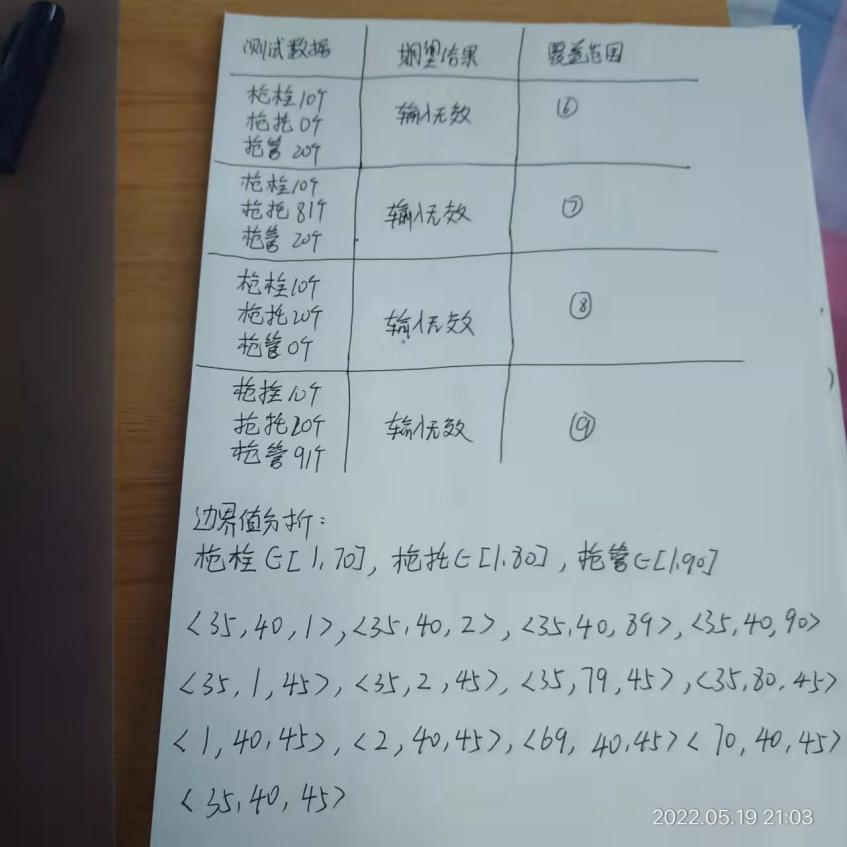 测试数据 期望结果 覆盖范围
枪栓10个
枪托0个 输入无效 ⑥
枪管20个
枪栓10个
枪托81个 输入无效 ⑦
枪管20个
枪栓10个
枪托20个 输入无效 ⑧
枪管0个
枪栓10个
枪托20个 输入无效 ⑨
枪管91个
边界值分析:
枪栓∈[1,70],枪托∈[1,80],枪管∈[1,90]
<35,40,1>,<35,40,2>,<35,40,89>,<35,40,90>
<35,1,45>,<35,2,45>,<35,79,45>,<35,80,45>
<1,40,45>,<2,40,45>,<69,40,45><70,40,45>
<35,40,45>
2022.05.19 21:03